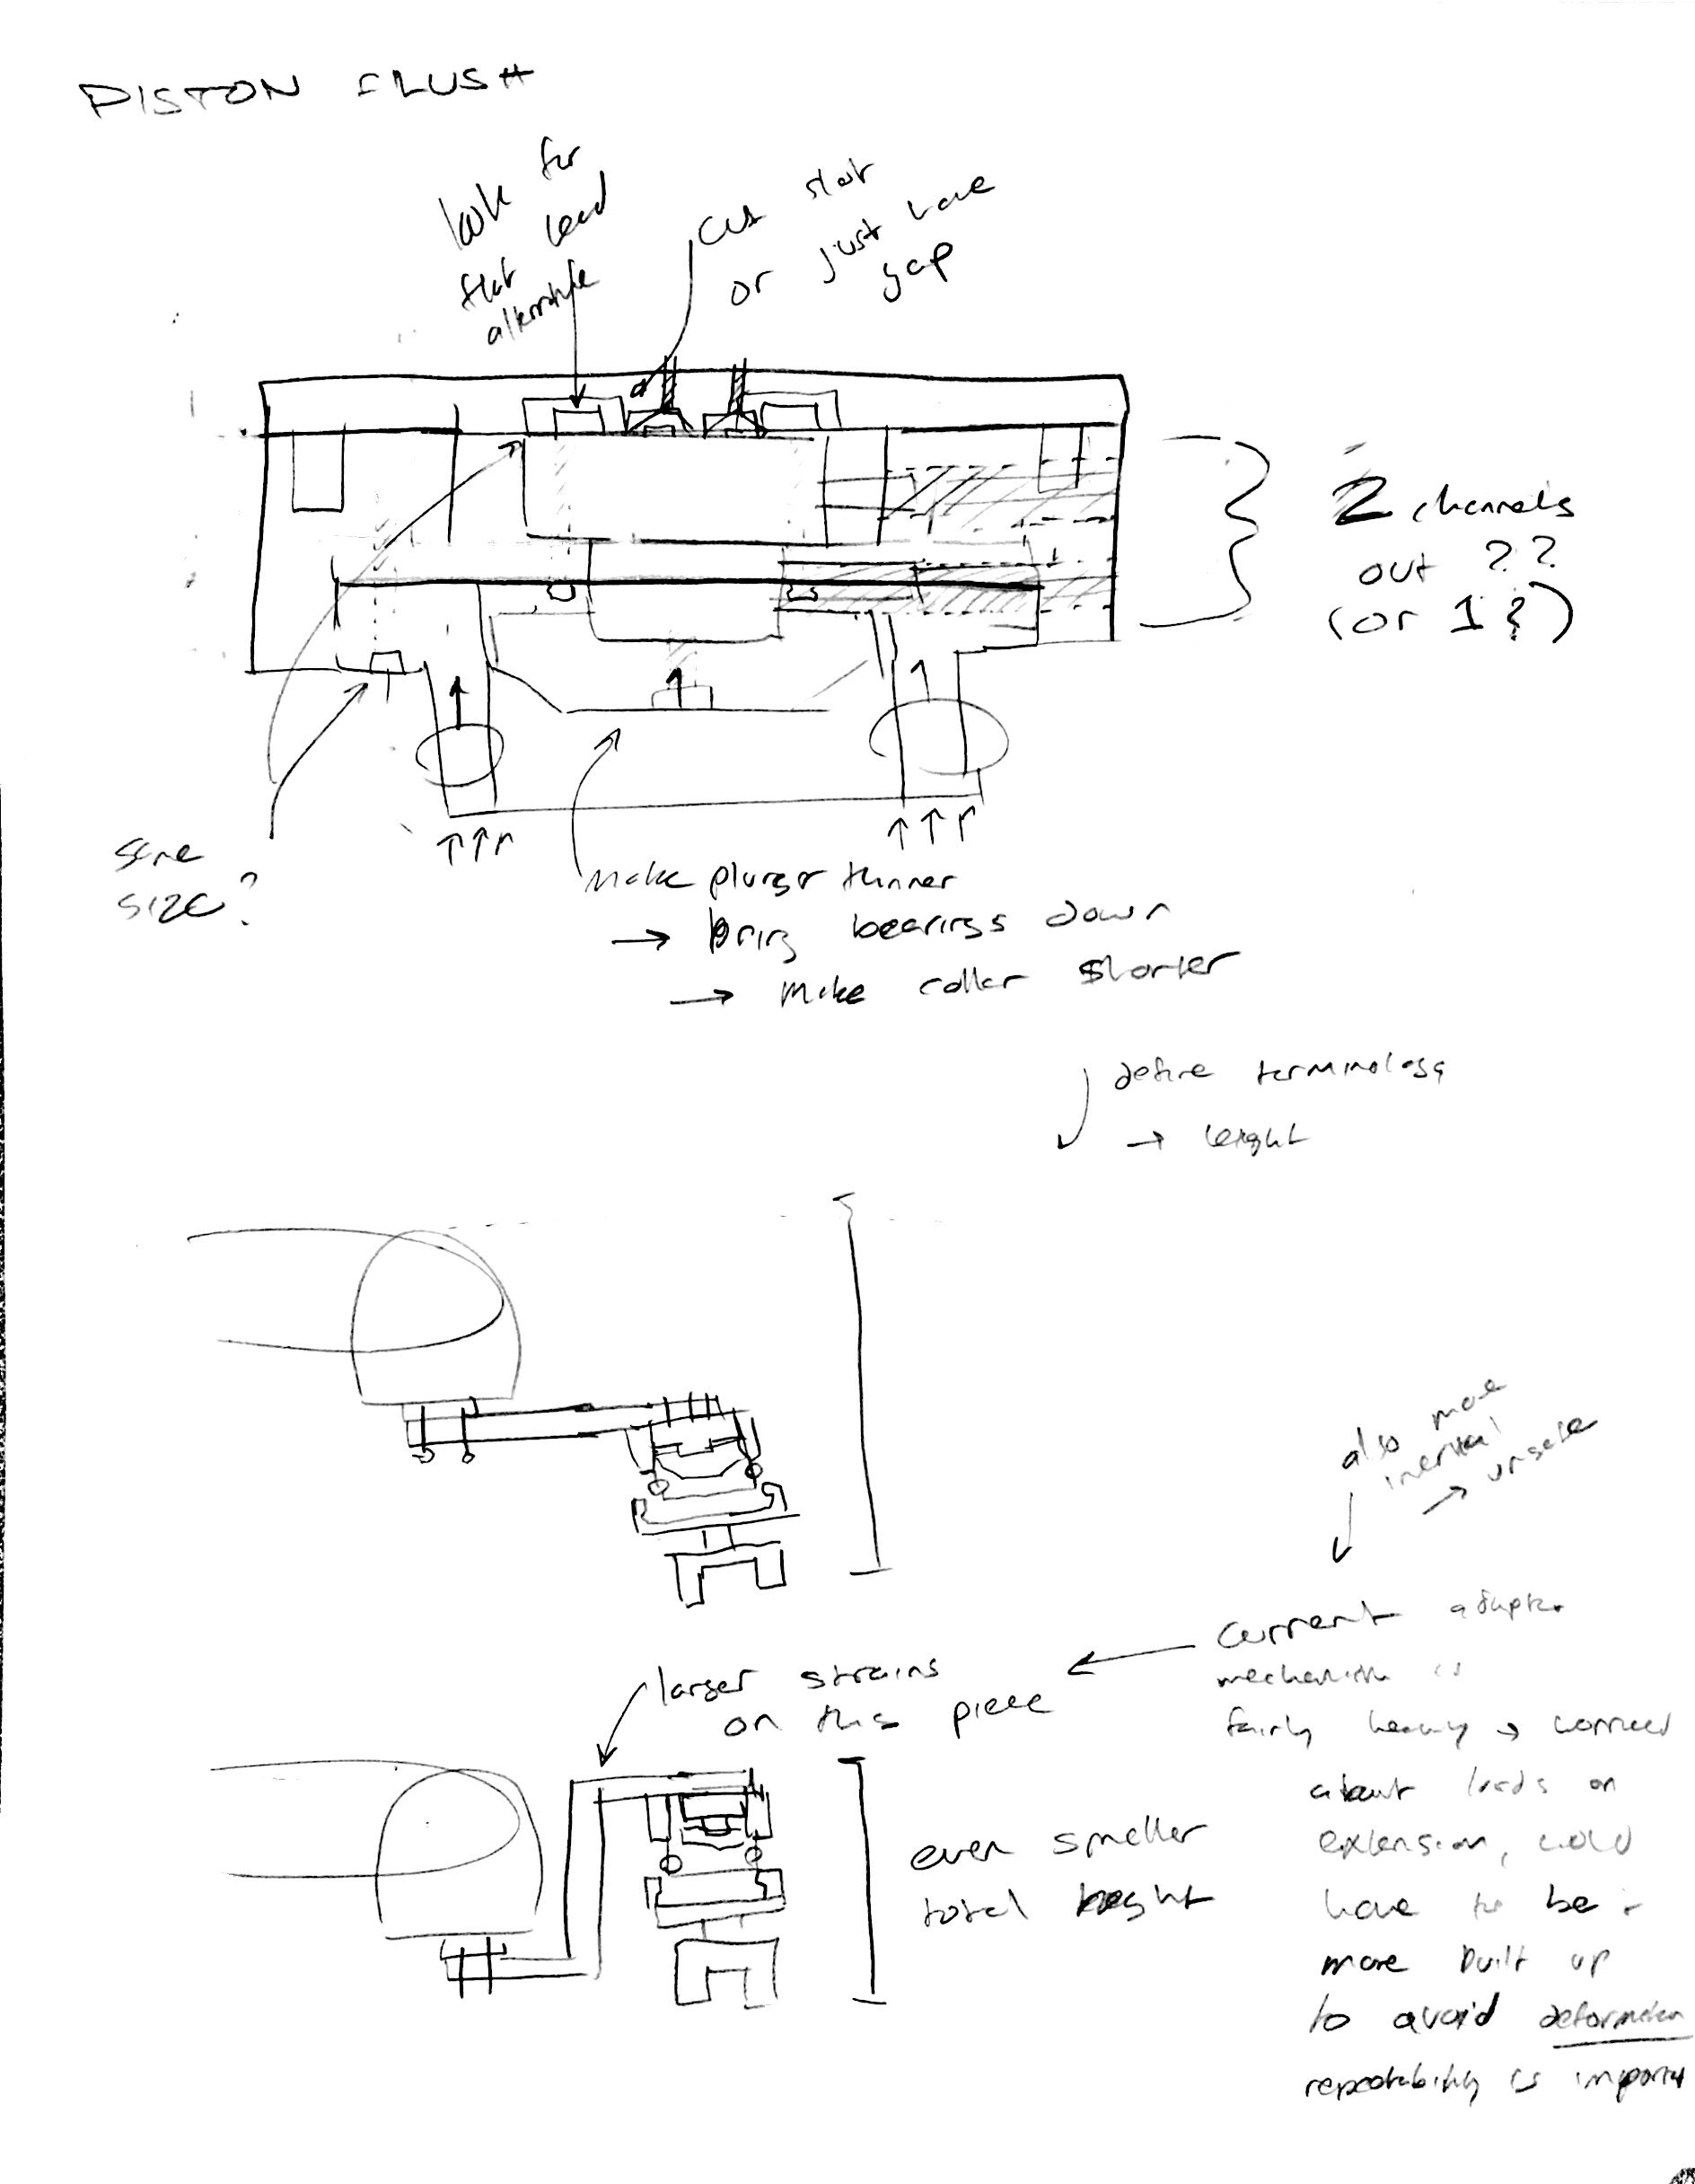 PISTON FLUSH
look for
flat head
alternative
cut slot
or just have
gap
2 channels
out ??
(or 1?)
same
size?
make plunger thinner
→ bring bearings down
→ make collar shorter
define terminology
→ height
also more
inertial
→ unsafe
larger strains
on this piece
current adapter
mechanism is
fairly heavy → worried
about loads on
extension, would
have to be
more built up
to avoid deformation
repeatability is import
even smaller
total height